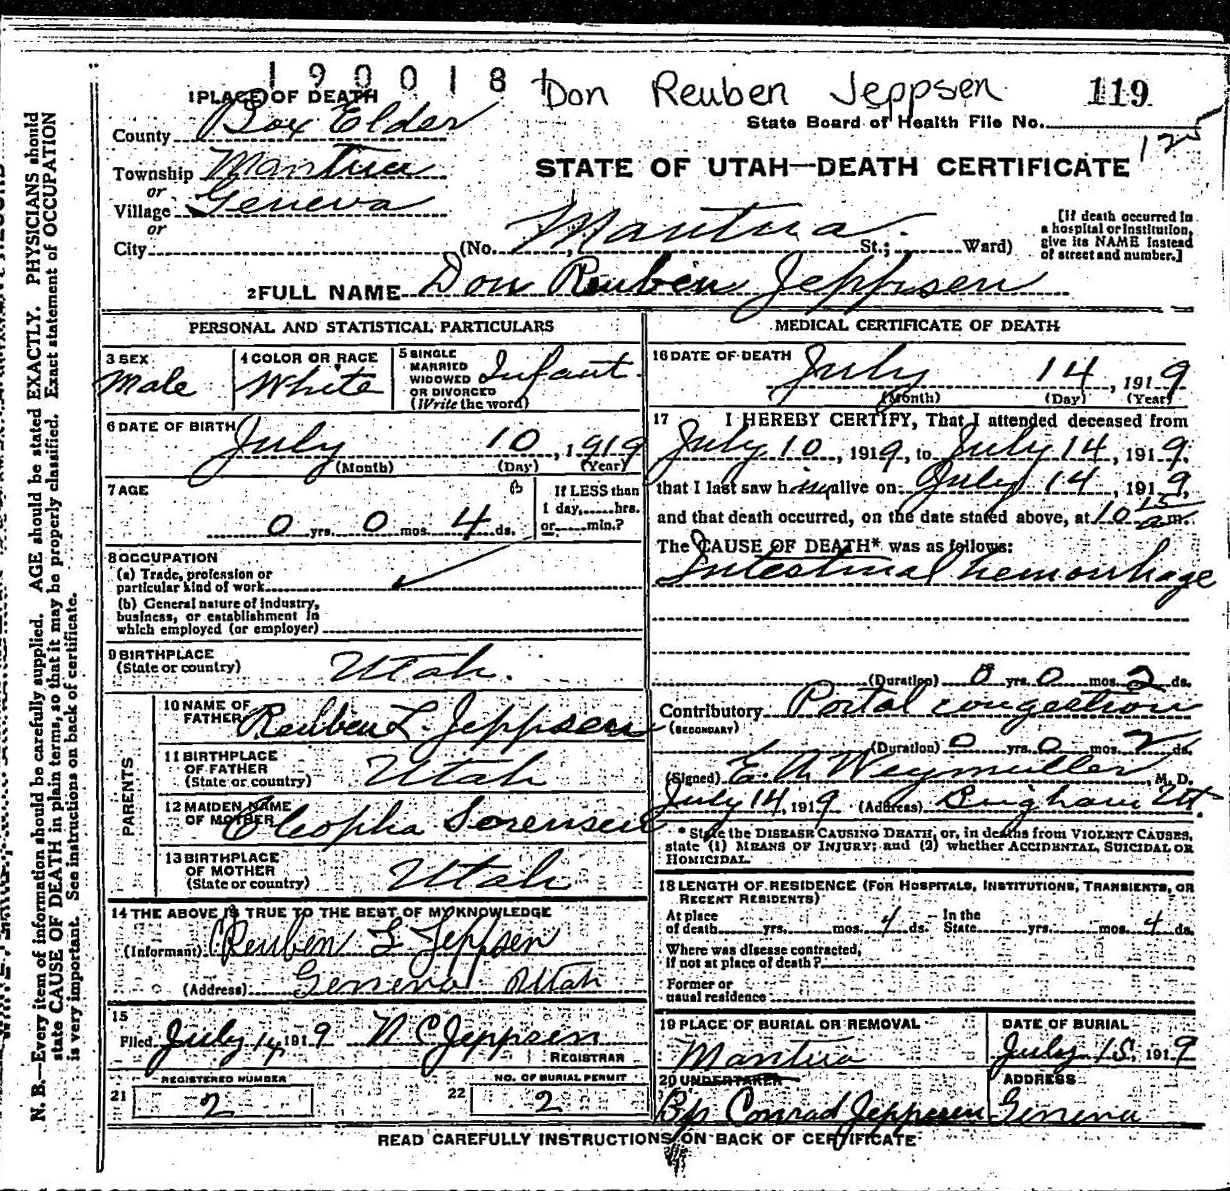 190018 Don Reuben Jeppsen 119
1 PLACE OF DEATH
State Board of Health File No.
125
County Box Elder
Township Mantua
or
Village Geneva
or
City
STATE OF UTAH—DEATH CERTIFICATE
(No. Mantua. St.; Ward)
[If death occurred in
a hospital or institution,
give its NAME instead
of street and number.]
2 FULL NAME Don Reuben Jeppsen
PERSONAL AND STATISTICAL PARTICULARS
3 SEX
Male
4 COLOR OR RACE
White
5 SINGLE
MARRIED
WIDOWED
OR DIVORCED
(Write the word)
Infant
6 DATE OF BIRTH
July 10, 1919
(Month) (Day) (Year)
7 AGE
0 yrs. 0 mos. 4 ds.
If LESS than
1 day, hrs.
or min.?
8 OCCUPATION
(a) Trade, profession or
particular kind of work
(b) General nature of industry,
business, or establishment in
which employed (or employer)
9 BIRTHPLACE
(State or country) Utah.
PARENTS
10 NAME OF
FATHER Reuben L. Jeppsen
11 BIRTHPLACE
OF FATHER
(State or country) Utah
12 MAIDEN NAME
OF MOTHER Cleopha Sorensen
13 BIRTHPLACE
OF MOTHER
(State or country) Utah
14 THE ABOVE IS TRUE TO THE BEST OF MY KNOWLEDGE
(Informant) Reuben L Jeppsen
(Address) Geneva Utah
15
Filed July 14, 1919 N C Jeppsen
REGISTRAR
REGISTERED NUMBER
21 2
NO. OF BURIAL PERMIT
22 2
MEDICAL CERTIFICATE OF DEATH
16 DATE OF DEATH
July 14, 1919
(Month) (Day) (Year)
17 I HEREBY CERTIFY, That I attended deceased from
July 10, 1919, to July 14, 1919,
that I last saw him alive on July 14, 1919,
and that death occurred, on the date stated above, at 10 15 a m.
The CAUSE OF DEATH* was as follows:
Intestinal hemorrhage
(Duration) 0 yrs. 0 mos. 2 ds.
Contributory Portal congestion
(SECONDARY)
(Duration) 0 yrs. 0 mos. 2 ds.
(Signed) E. A. Weymuller M. D.
July 14, 1919 (Address) Brigham Ut
* State the DISEASE CAUSING DEATH, or, in deaths from VIOLENT CAUSES,
state (1) MEANS OF INJURY; and (2) whether ACCIDENTAL, SUICIDAL OR
HOMICIDAL.
18 LENGTH OF RESIDENCE (FOR HOSPITALS, INSTITUTIONS, TRANSIENTS, OR
RECENT RESIDENTS)
At place
of death yrs. mos. 4 ds. In the
State yrs. mos. 4 ds.
Where was disease contracted,
if not at place of death?
Former or
usual residence
19 PLACE OF BURIAL OR REMOVAL
Mantua
DATE OF BURIAL
July 15, 1919
20 UNDERTAKER
Bp Conrad Jeppesen
ADDRESS
Geneva
READ CAREFULLY INSTRUCTIONS ON BACK OF CERTIFICATE
N. B.—Every item of information should be carefully supplied. AGE should be stated EXACTLY. PHYSICIANS should
state CAUSE OF DEATH in plain terms, so that it may be properly classified. Exact statement of OCCUPATION
is very important. See instructions on back of certificate.